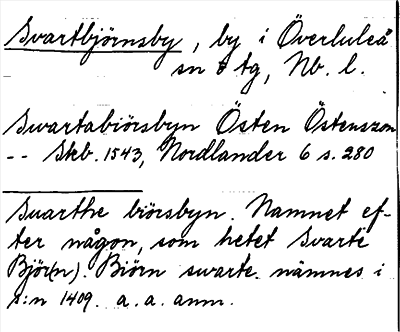 Svartbjörnsby, by i Överluleå
sn o tg, Nb. l.
Swartabiörsbyn Östen Östensson
-- Skb. 1543, Nordlander 6 s. 280
Suarthe biörsbyn. Namnet ef-
ter någon, som hetet Svarte
Björ(n). Biörn swarte nämnes i
s:n 1409. a. a. anm.